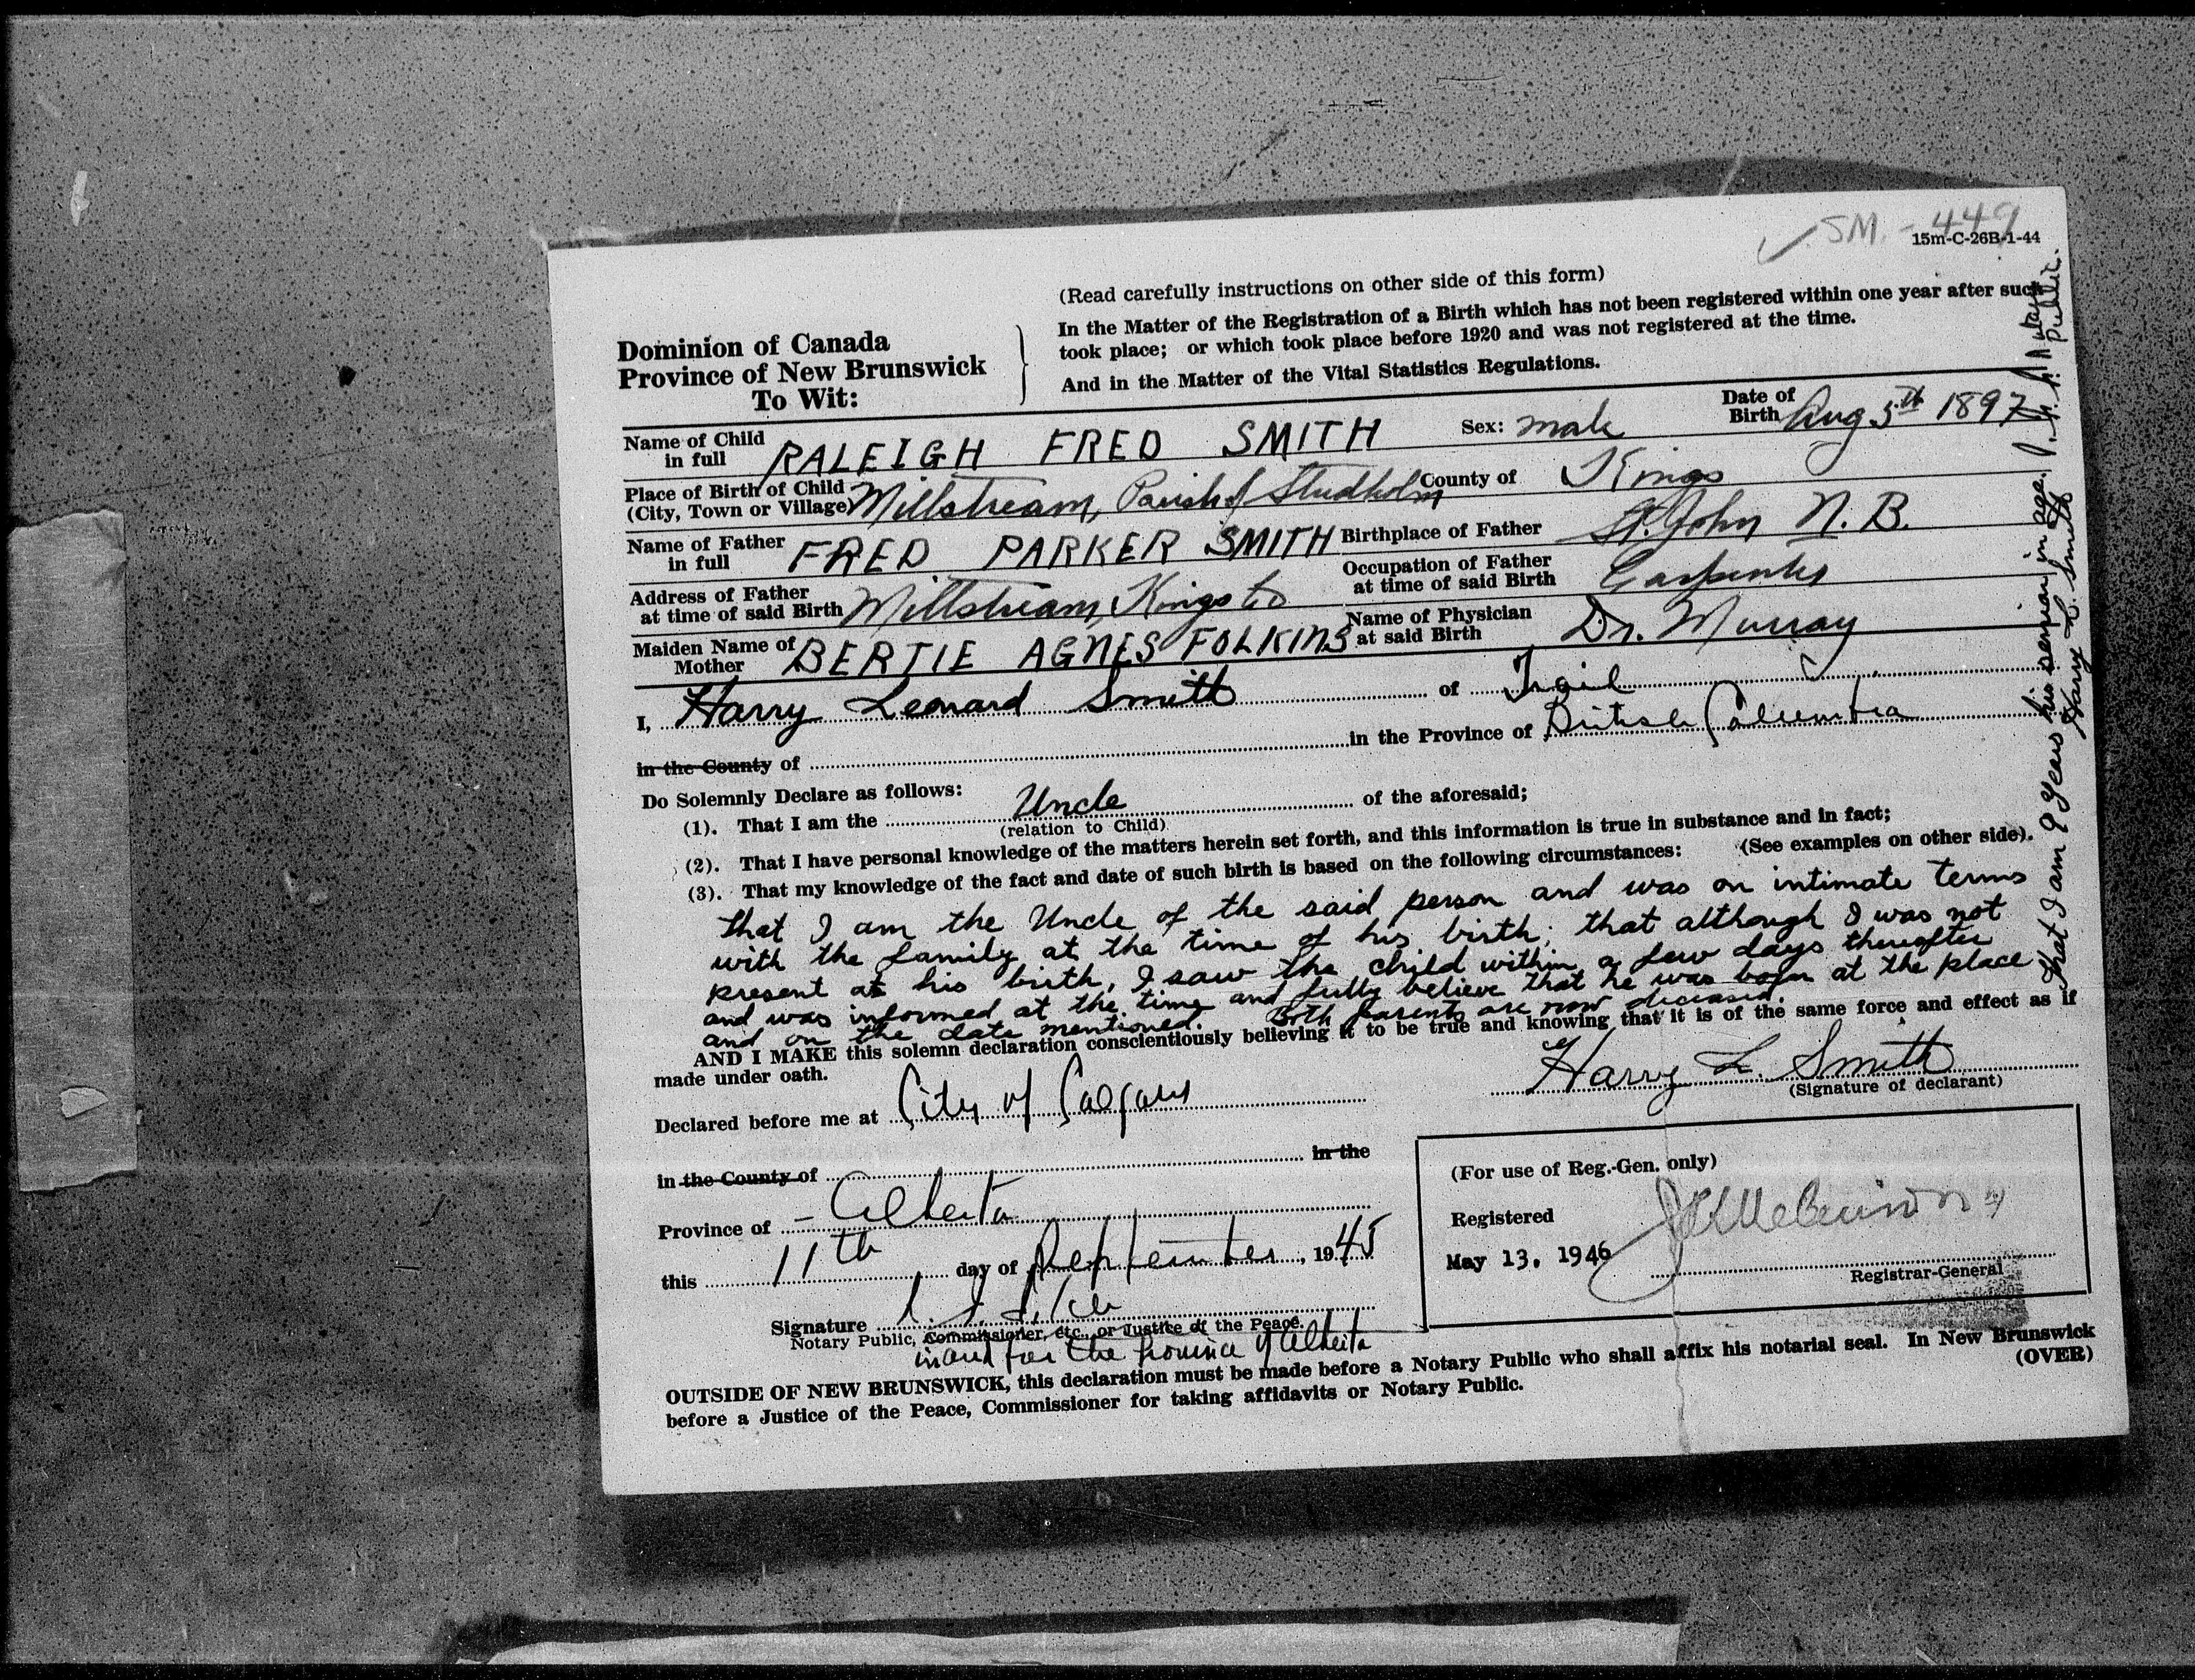 SM. - 449
15m-C-26B-1-44
(Read carefully instructions on other side of this form)
Dominion of Canada
Province of New Brunswick
To Wit:
In the Matter of the Registration of a Birth which has not been registered within one year after such
took place; or which took place before 1920 and was not registered at the time.
And in the Matter of the Vital Statistics Regulations.
Name of Child in full RALEIGH FRED SMITH Sex: male Date of Birth Aug 5th 1897
Place of Birth of Child (City, Town or Village) Millstream, Parish of Studholm County of Kings
Name of Father in full FRED PARKER SMITH Birthplace of Father St. John N. B.
Address of Father at time of said Birth Millstream, Kings Co Occupation of Father at time of said Birth Carpenter
Maiden Name of Mother BERTIE AGNES FOLKINS Name of Physician at said Birth Dr. Murray
I, Harry Leonard Smith of Trail
in the County of in the Province of British Columbia
Do Solemnly Declare as follows:
(1). That I am the Uncle of the aforesaid;
(relation to Child)
(2). That I have personal knowledge of the matters herein set forth, and this information is true in substance and in fact;
(3). That my knowledge of the fact and date of such birth is based on the following circumstances: (See examples on other side).
that I am the Uncle of the said person and was on intimate terms
with the family at the time of his birth; that although I was not
present at his birth, I saw the child within a few days thereafter
and was informed at the time and fully believe that he was born at the place
and on the date mentioned. Both parents are now deceased.
that I am 9 years his senior in age.
Harry L. Smith
Notary Public.
AND I MAKE this solemn declaration conscientiously believing it to be true and knowing that it is of the same force and effect as if
made under oath.
Harry L. Smith
(Signature of declarant)
Declared before me at City of Calgary
in the County of in the
Province of - Alberta
this 11th day of September, 1945
Signature
Notary Public, Commissioner, etc., or Justice of the Peace.
in and for the Province of Alberta
(For use of Reg.-Gen. only)
Registered
May 13, 1946
Registrar-General
OUTSIDE OF NEW BRUNSWICK, this declaration must be made before a Notary Public who shall affix his notarial seal. In New Brunswick
before a Justice of the Peace, Commissioner for taking affidavits or Notary Public.
(OVER)